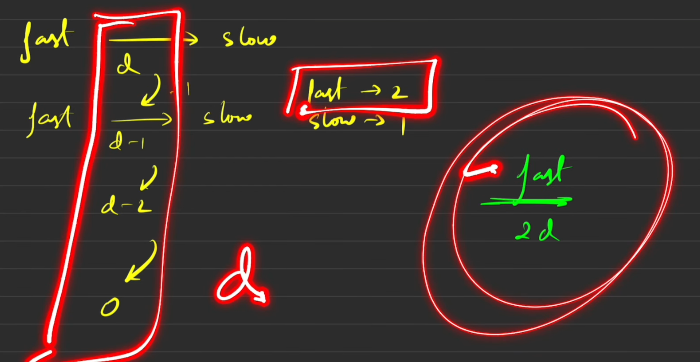 fast → slow
d
-1
fast → slow
d-1
d-2
0
fast → 2
slow → 1
d
fast
2d